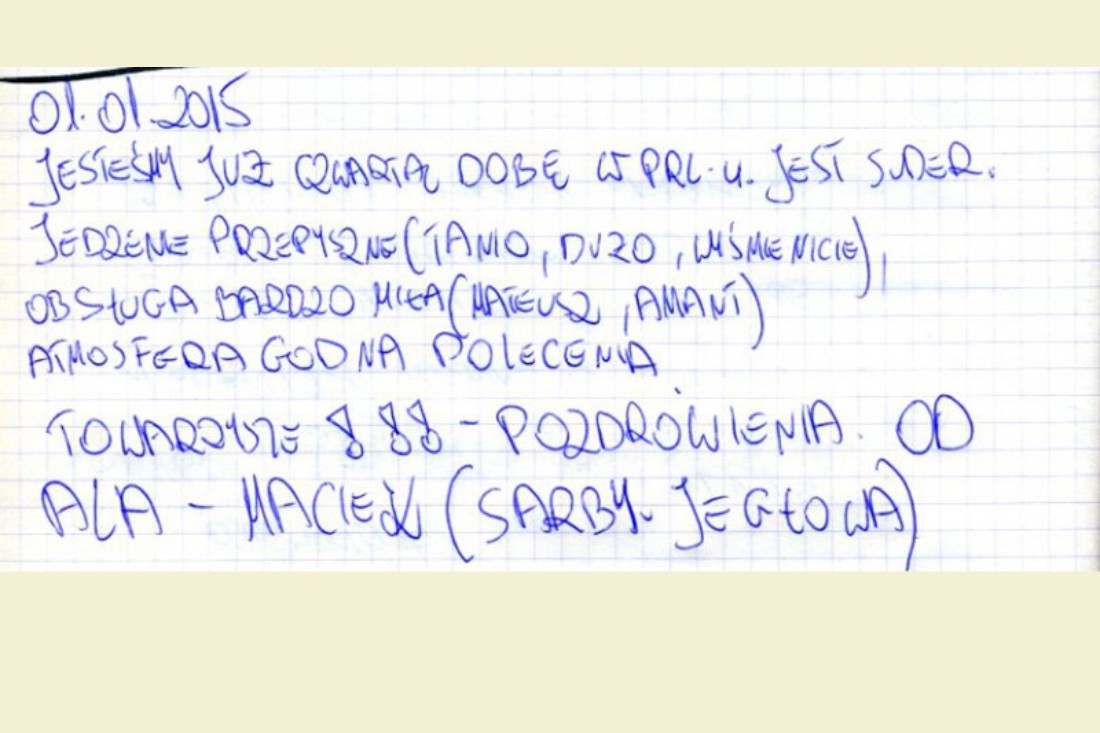 01.01.2015
JESTEŚMY JUŻ CZWARTĄ DOBĘ W PRL-U. JEST SUPER.
JEDZENIE PRZEPYSZNE (TANIO, DUŻO, WYŚMIENICIE),
OBSŁUGA BARDZO MIŁA (MATEUSZ, AMANT)
ATMOSFERA GODNA POLECENIA
TOWARZYSZE 888 - POZDRÓWIENIA. OD
ALA - MACIEJ (SARBY. JEGŁOWA)